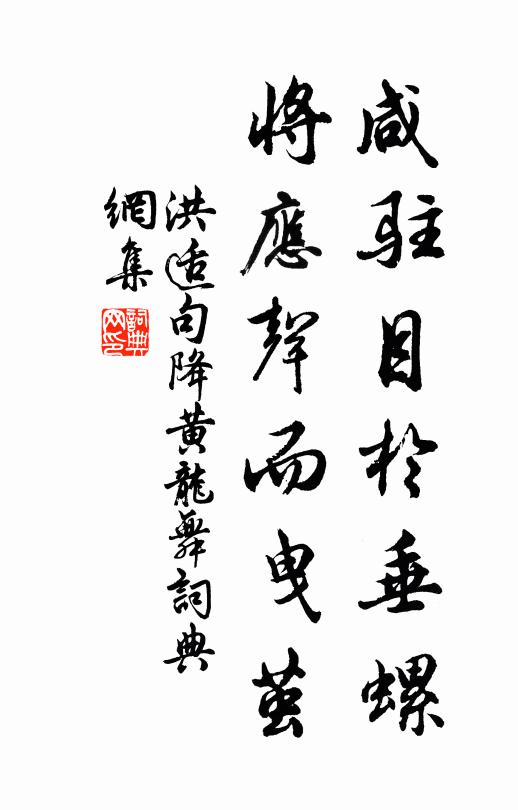 咸駐目於垂螺
將應聲而曳繭
洪适句降黃龍舞詞典
網集
詞典
网印